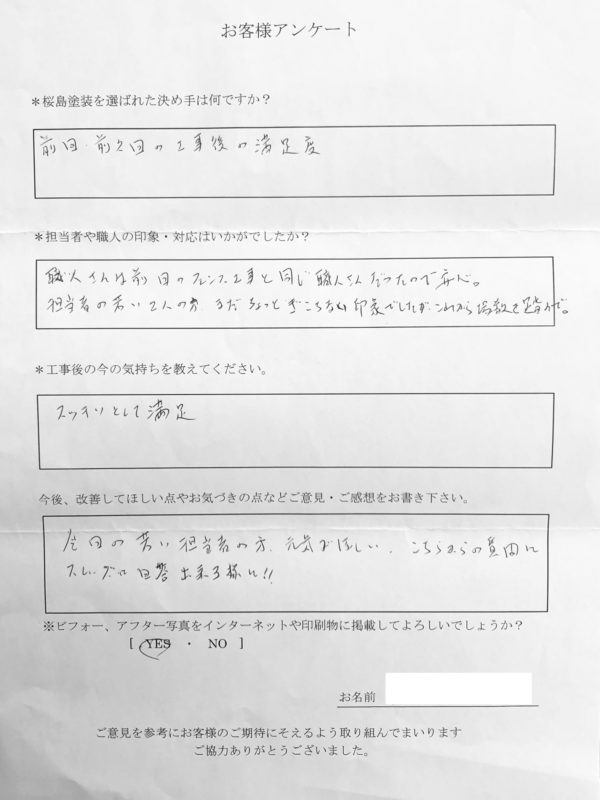 お客様アンケート
＊桜島塗装を選ばれた決め手は何ですか？
前回・前々回の工事後の満足度
＊担当者や職人の印象・対応はいかがでしたか？
職人さんは前回のフェンス工事と同じ職人さんだったので安心。
担当者の若い2人の方、まだちょっとぎこちない印象でしたが、これから場数を踏んで。
＊工事後の今の気持ちを教えてください。
スッキリとして満足
今後、改善してほしい点やお気づきの点などご意見・ご感想をお書き下さい。
今回の若い担当者の方、元気がほしい、こちらからの質問に
スムーズに回答出来る様に!!
※ビフォー、アフター写真をインターネットや印刷物に掲載してよろしいでしょうか？
[ YES ・ NO ]
お名前
ご意見を参考にお客様のご期待にそえるよう取り組んでまいります
ご協力ありがとうございました。